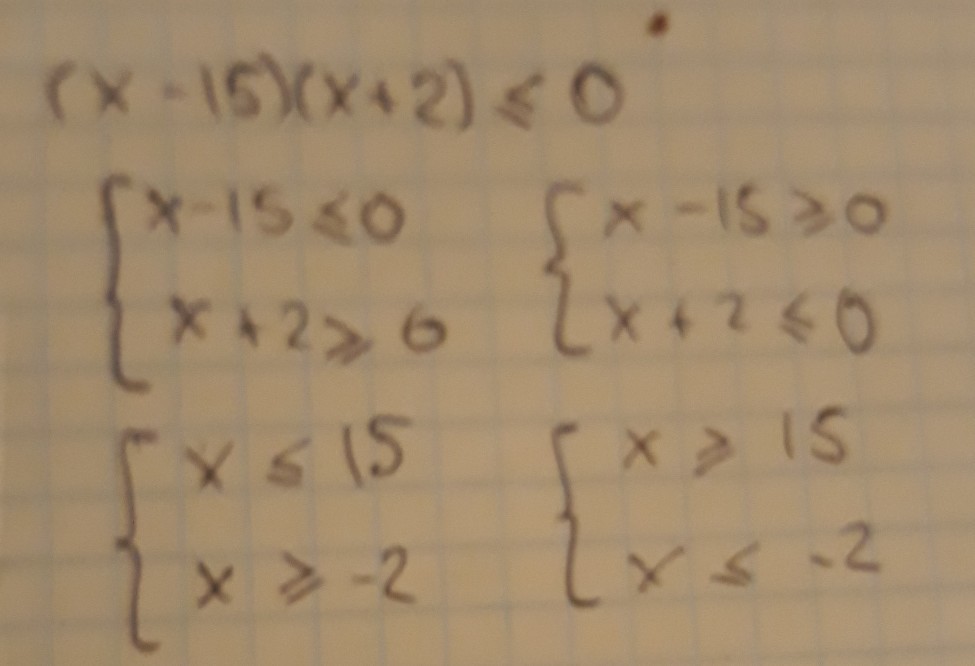 (x - 15)(x + 2) ⩽ 0
{ x - 15 ⩽ 0
x + 2 ⩾ 0
{ x - 15 ⩾ 0
x + 2 ⩽ 0
{ x ⩽ 15
x ⩾ -2
{ x ⩾ 15
x ⩽ -2